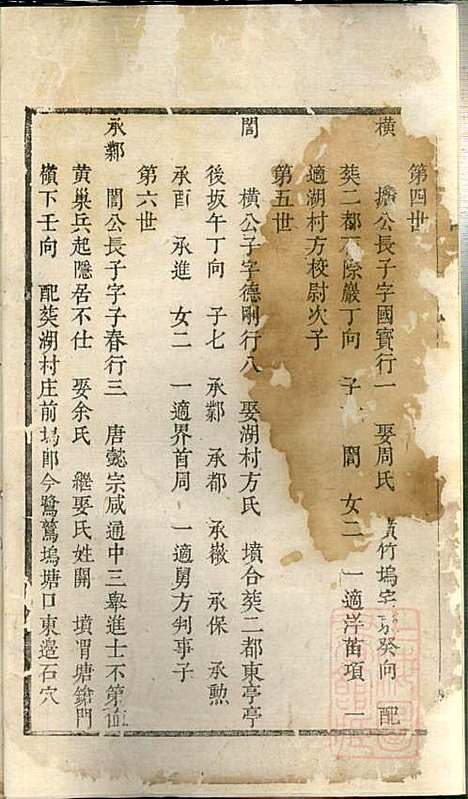 第四世
橫 擴公長子字國寶行一 娶周氏 黃竹塢 癸向 配
葵二都 除巖丁向 子一 誾 女二 一適洋苗項 一
適湖村方校尉次子
第五世
誾 橫公子字德剛行八 娶湖村方氏 墳合葵二都東亭亭
後坂午丁向 子七 承鄴 承都 承嶶 承保 承勲
承酉 承進 女二 一適界首周 一適舅方判事子
第六世
承鄴 誾公長子字子春行三 唐懿宗咸通中三舉進士不第值
黃巢兵起隱居不仕 娶余氏 繼娶氏姓闕 墳渭塘 門
嶺下壬向 配葵湖村庄前塢郎今鷺鷥塢塘口東邉石穴